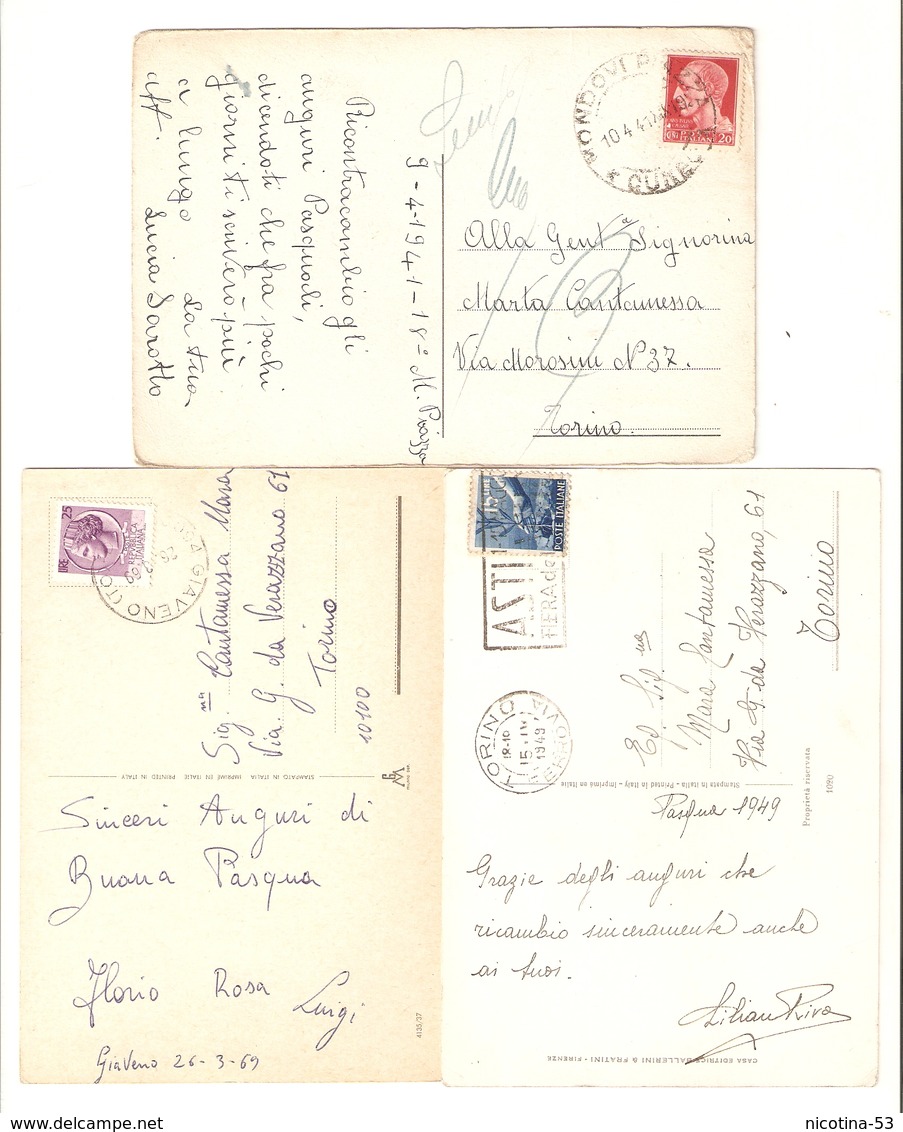 Ricontracambio gli
auguri Pasquali,
dicendoti che fra pochi
giorni ti scriverò più
a lungo La tua
aff. Lucia Sarotto
9-4-1941-18º M. Piazza
MONDOVI PIAZZA
10.4.41
CUNEO
20
Alla Gentª Signorina
Marta Cantamessa
Via Morosini Nº 37.
Torino.
LIRE 25
REPUBBLICA
ITALIANA
GIAVENO (TO
Sigⁿᵃ Cantamessa Mara
Via G. da Verazzano 61
Torino
10100
STAMPATO IN ITALIA IMPRIMÉ EN ITALIE PRINTED IN ITALY
Sinceri Auguri di
Buona Pasqua
Florio Rosa Luigi
Giaveno 26-3-69
4135/37
POSTE ITALIANE
ASTI
FIERA de
TORINO
18-19
15 IV
1949
FERROVIA
Mara Cantamessa
Via G. da Verazzano, 61
Torino
Stampata in Italia - Printed in Italy - Imprimé en Italie
Proprietà riservata
1090
Pasqua 1949
Grazie degli auguri che
ricambio sinceramente anche
ai tuoi.
Lilian Riva
CASA EDITRICE BALLERINI & FRATINI - FIRENZE
nicotina-53